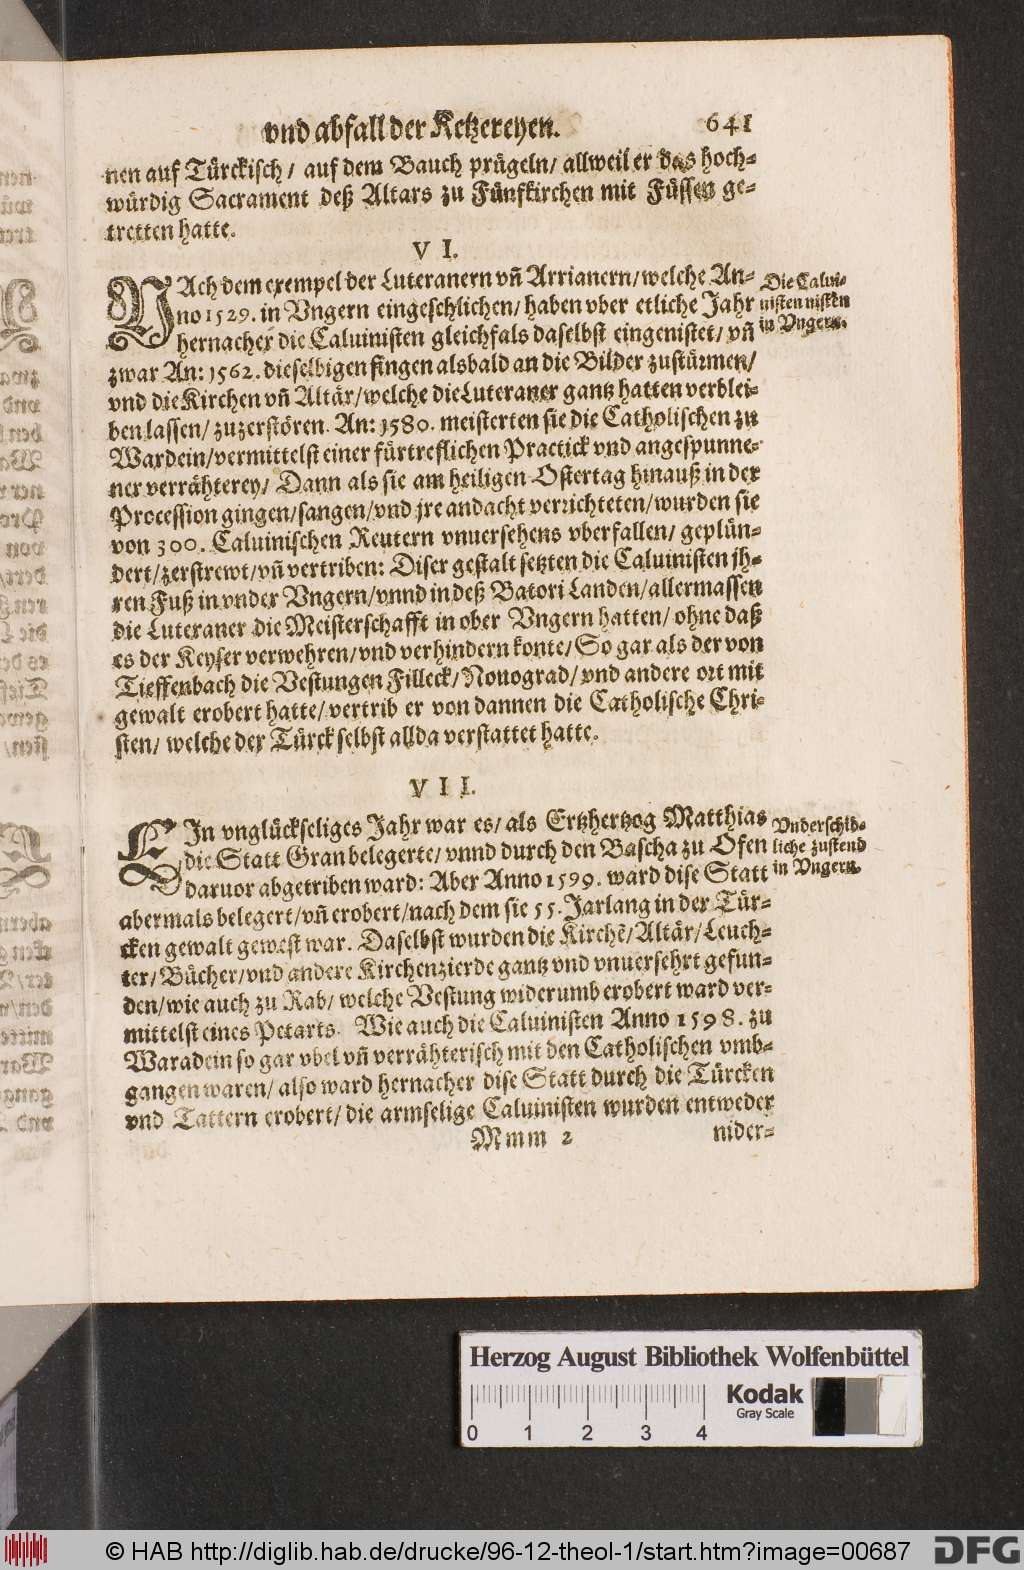 vnd abfall der Ketzereyen. 641
nen auf Türckisch / auf dem Bauch prügeln / allweil er das hoch-
würdig Sacrament deß Altars zu Fünfkirchen mit Füssen ge-
tretten hatte.
V I.
NAch dem exempel der Luteranern vñ Arrianern / welche An-
no 1529. in Vngern eingeschlichen / haben vber etliche Jahr
hernacher die Caluinisten gleichfals daselbst eingenistet / vñ
Die Calui-
nisten nisten
in Vngern.
zwar An: 1562. dieselbigen fingen alsbald an die Bilder zustürmen /
vnd die Kirchen vñ Altär / welche die Luteraner gantz hatten verblei-
ben lassen / zuzerstören. An: 1580. meisterten sie die Catholischen zu
Wardein / vermittelst einer fürtreflichen Practick vnd angespunne-
ner verrähterey / Dann als sie am heiligen Ostertag hinauß in der
Procession gingen / sangen / vnd jre andacht verrichteten / wurden sie
von 300. Caluinischen Reutern vnuersehens vberfallen / geplün-
dert / zerstrewt / vñ vertriben: Diser gestalt setzten die Caluinisten jh-
ren Fuß in vnder Vngern / vnnd in deß Batori Landen / allermassen
die Luteraner die Meisterschafft in ober Vngern hatten / ohne daß
es der Keyser verwehren / vnd verhindern konte / So gar als der von
Tieffenbach die Vestungen Filleck / Nouograd / vnd andere ort mit
gewalt erobert hatte / vertrib er von dannen die Catholische Chri-
sten / welche der Türck selbst allda verstattet hatte.
V I I.
EIn vnglückseliges Jahr war es / als Ertzhertzog Matthias
die Statt Gran belegerte / vnnd durch den Bascha zu Ofen
daruor abgetriben ward: Aber Anno 1599. ward dise Statt
Vnderschid-
liche zustend
in Vngern.
abermals belegert / vñ erobert / nach dem sie 55. Jarlang in der Tür-
cken gewalt gewest war. Daselbst wurden die Kirchẽ / Altär / Leuch-
ter / Bücher / vnd andere Kirchenzierde gantz vnd vnuersehrt gefun-
den / wie auch zu Rab / welche Vestung widerumb erobert ward ver-
mittelst eines Petarts. Wie auch die Caluinisten Anno 1598. zu
Waradein so gar vbel vñ verrähterisch mit den Catholischen vmb-
gangen waren / also ward hernacher dise Statt durch die Türcken
vnd Tattern erobert / die armselige Caluinisten wurden entweder
Mmm 2 nider-
Herzog August Bibliothek Wolfenbüttel
Kodak
Gray Scale
0 1 2 3 4
© HAB http://diglib.hab.de/drucke/96-12-theol-1/start.htm?image=00687
DFG